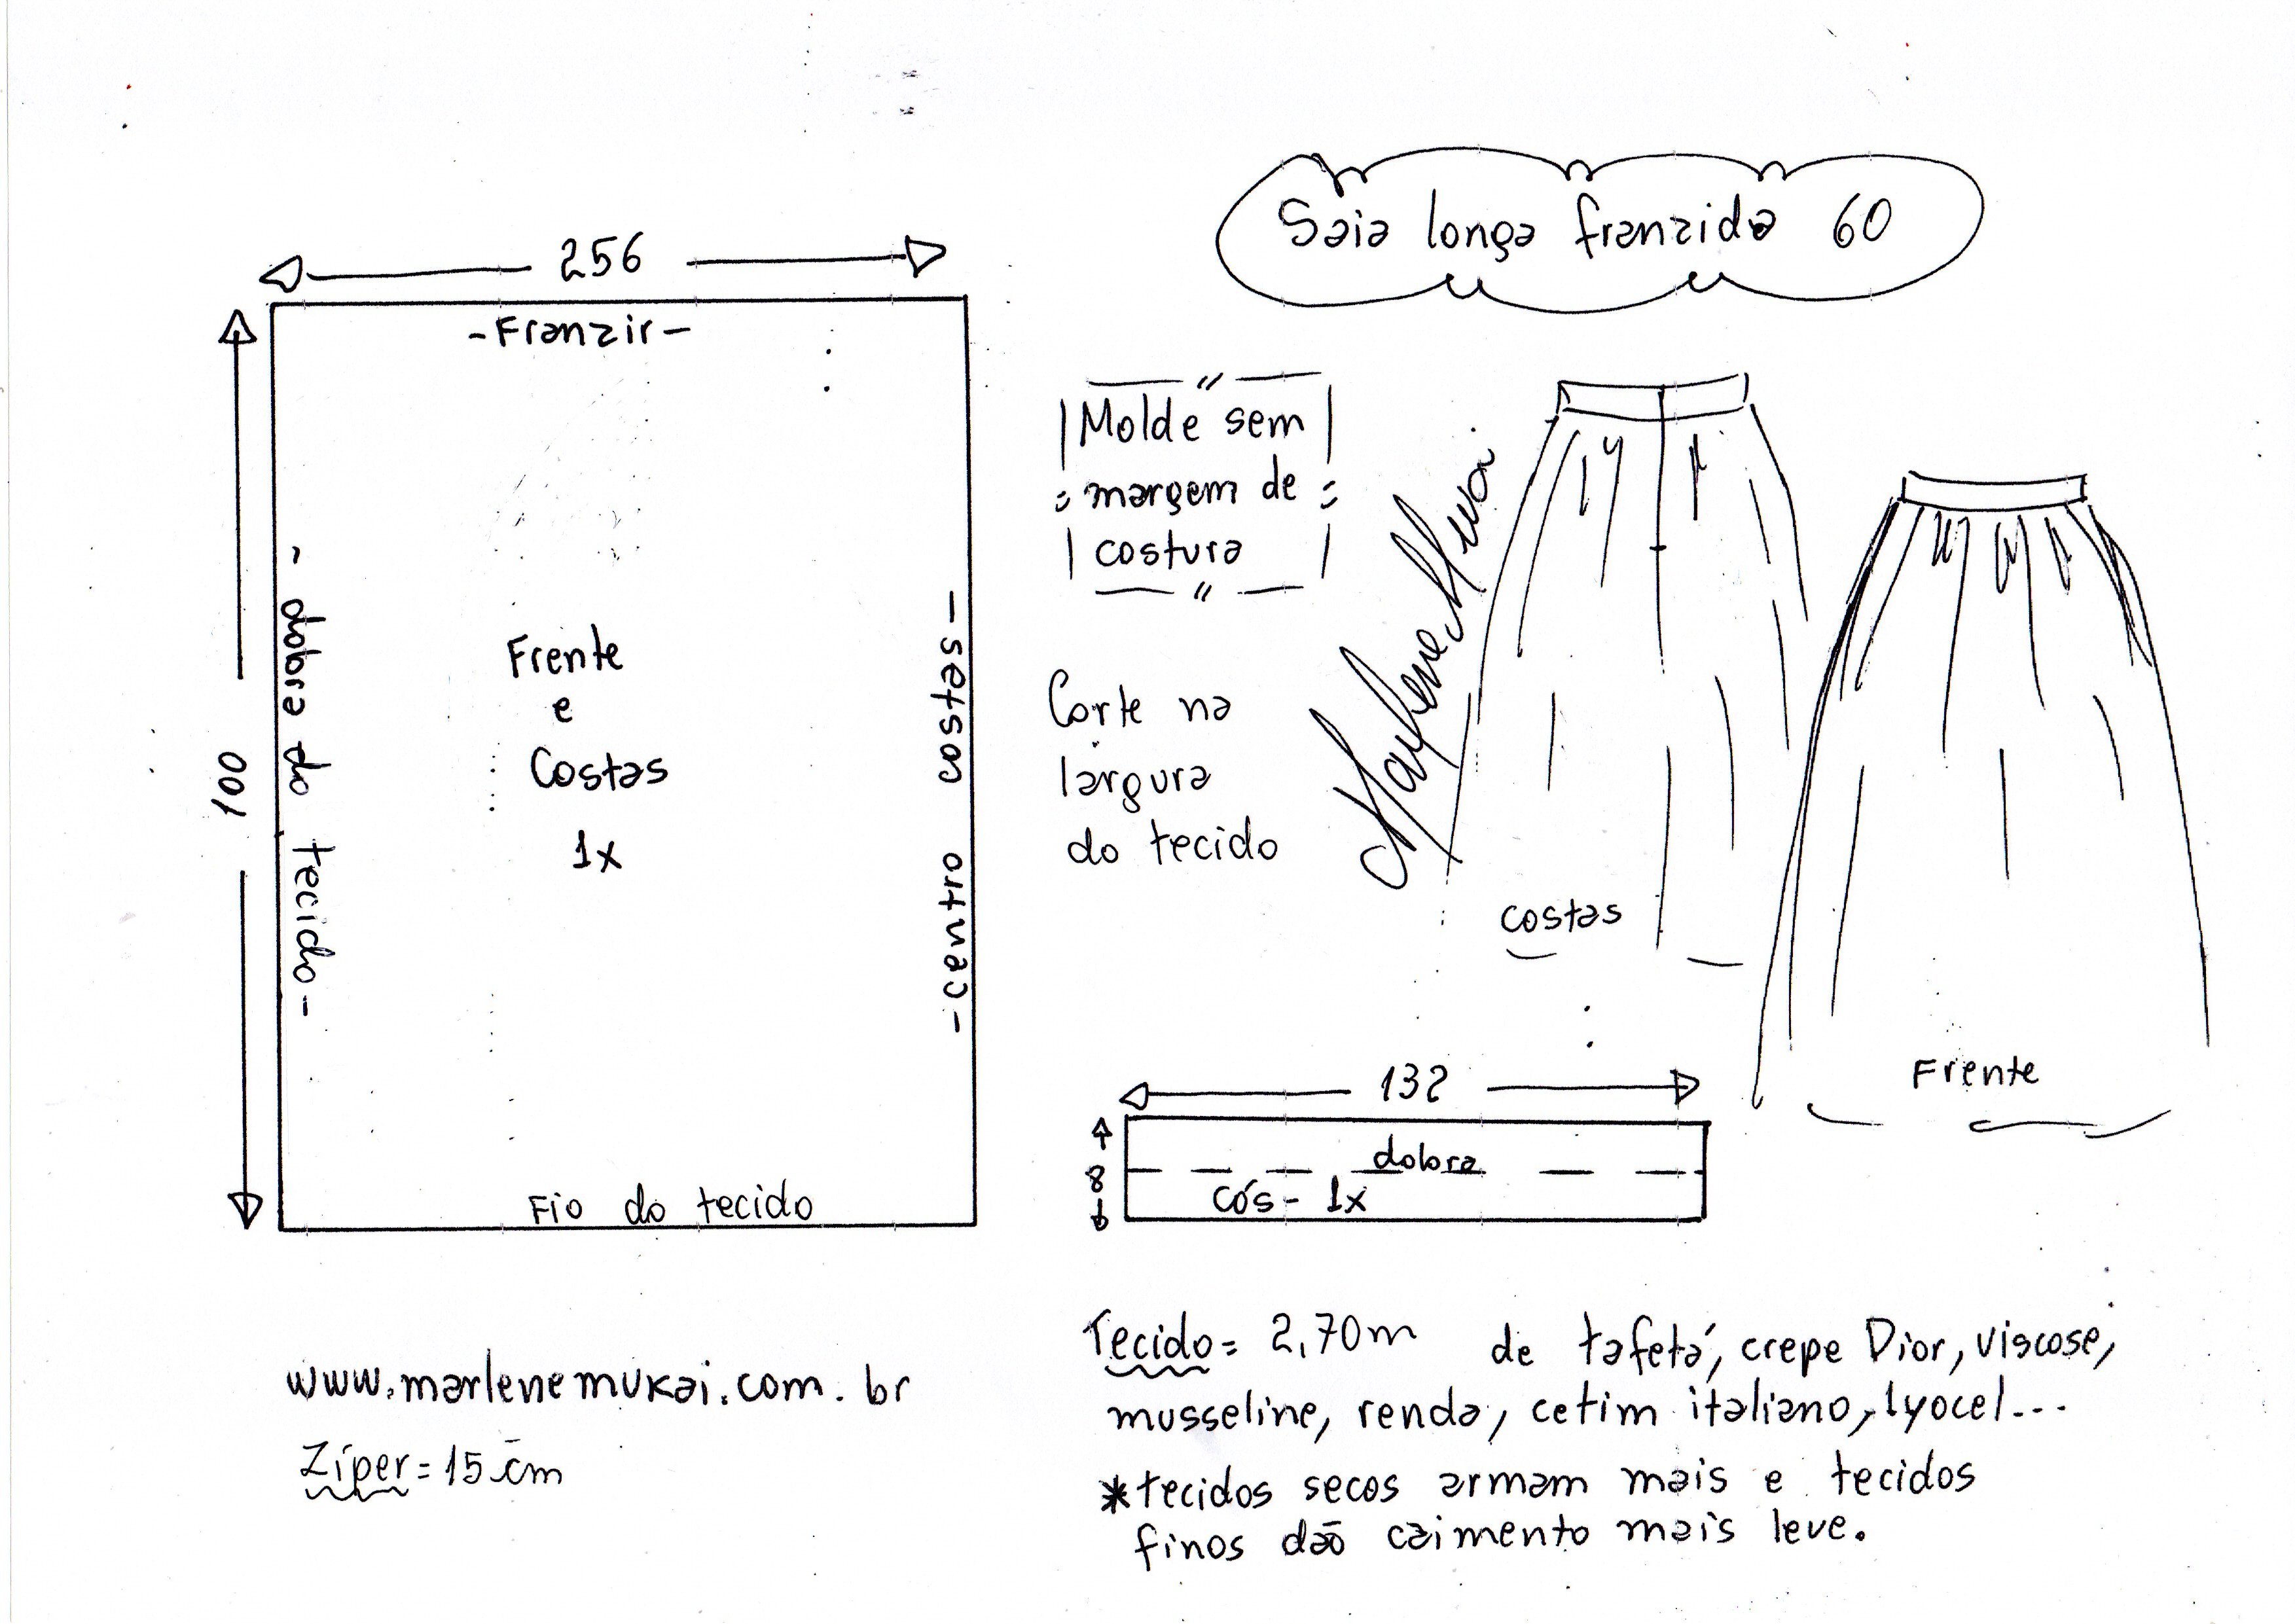 Saia longa franzida 60
256
-Franzir-
100
- dobra do tecido-
Frente
e
Costas
1x
-centro costas-
Fio do tecido
Molde sem
margem de
costura
Corte na
largura
do tecido
Marlene Mukai
costas
Frente
132
8
dobra
cós- 1x
www.marlenemukai.com.br
Zíper= 15 cm
Tecido= 2,70m de tafetá, crepe Dior, viscose,
musseline, renda, cetim italiano, lyocel...
*tecidos secos armam mais e tecidos
finos dão caimento mais leve.